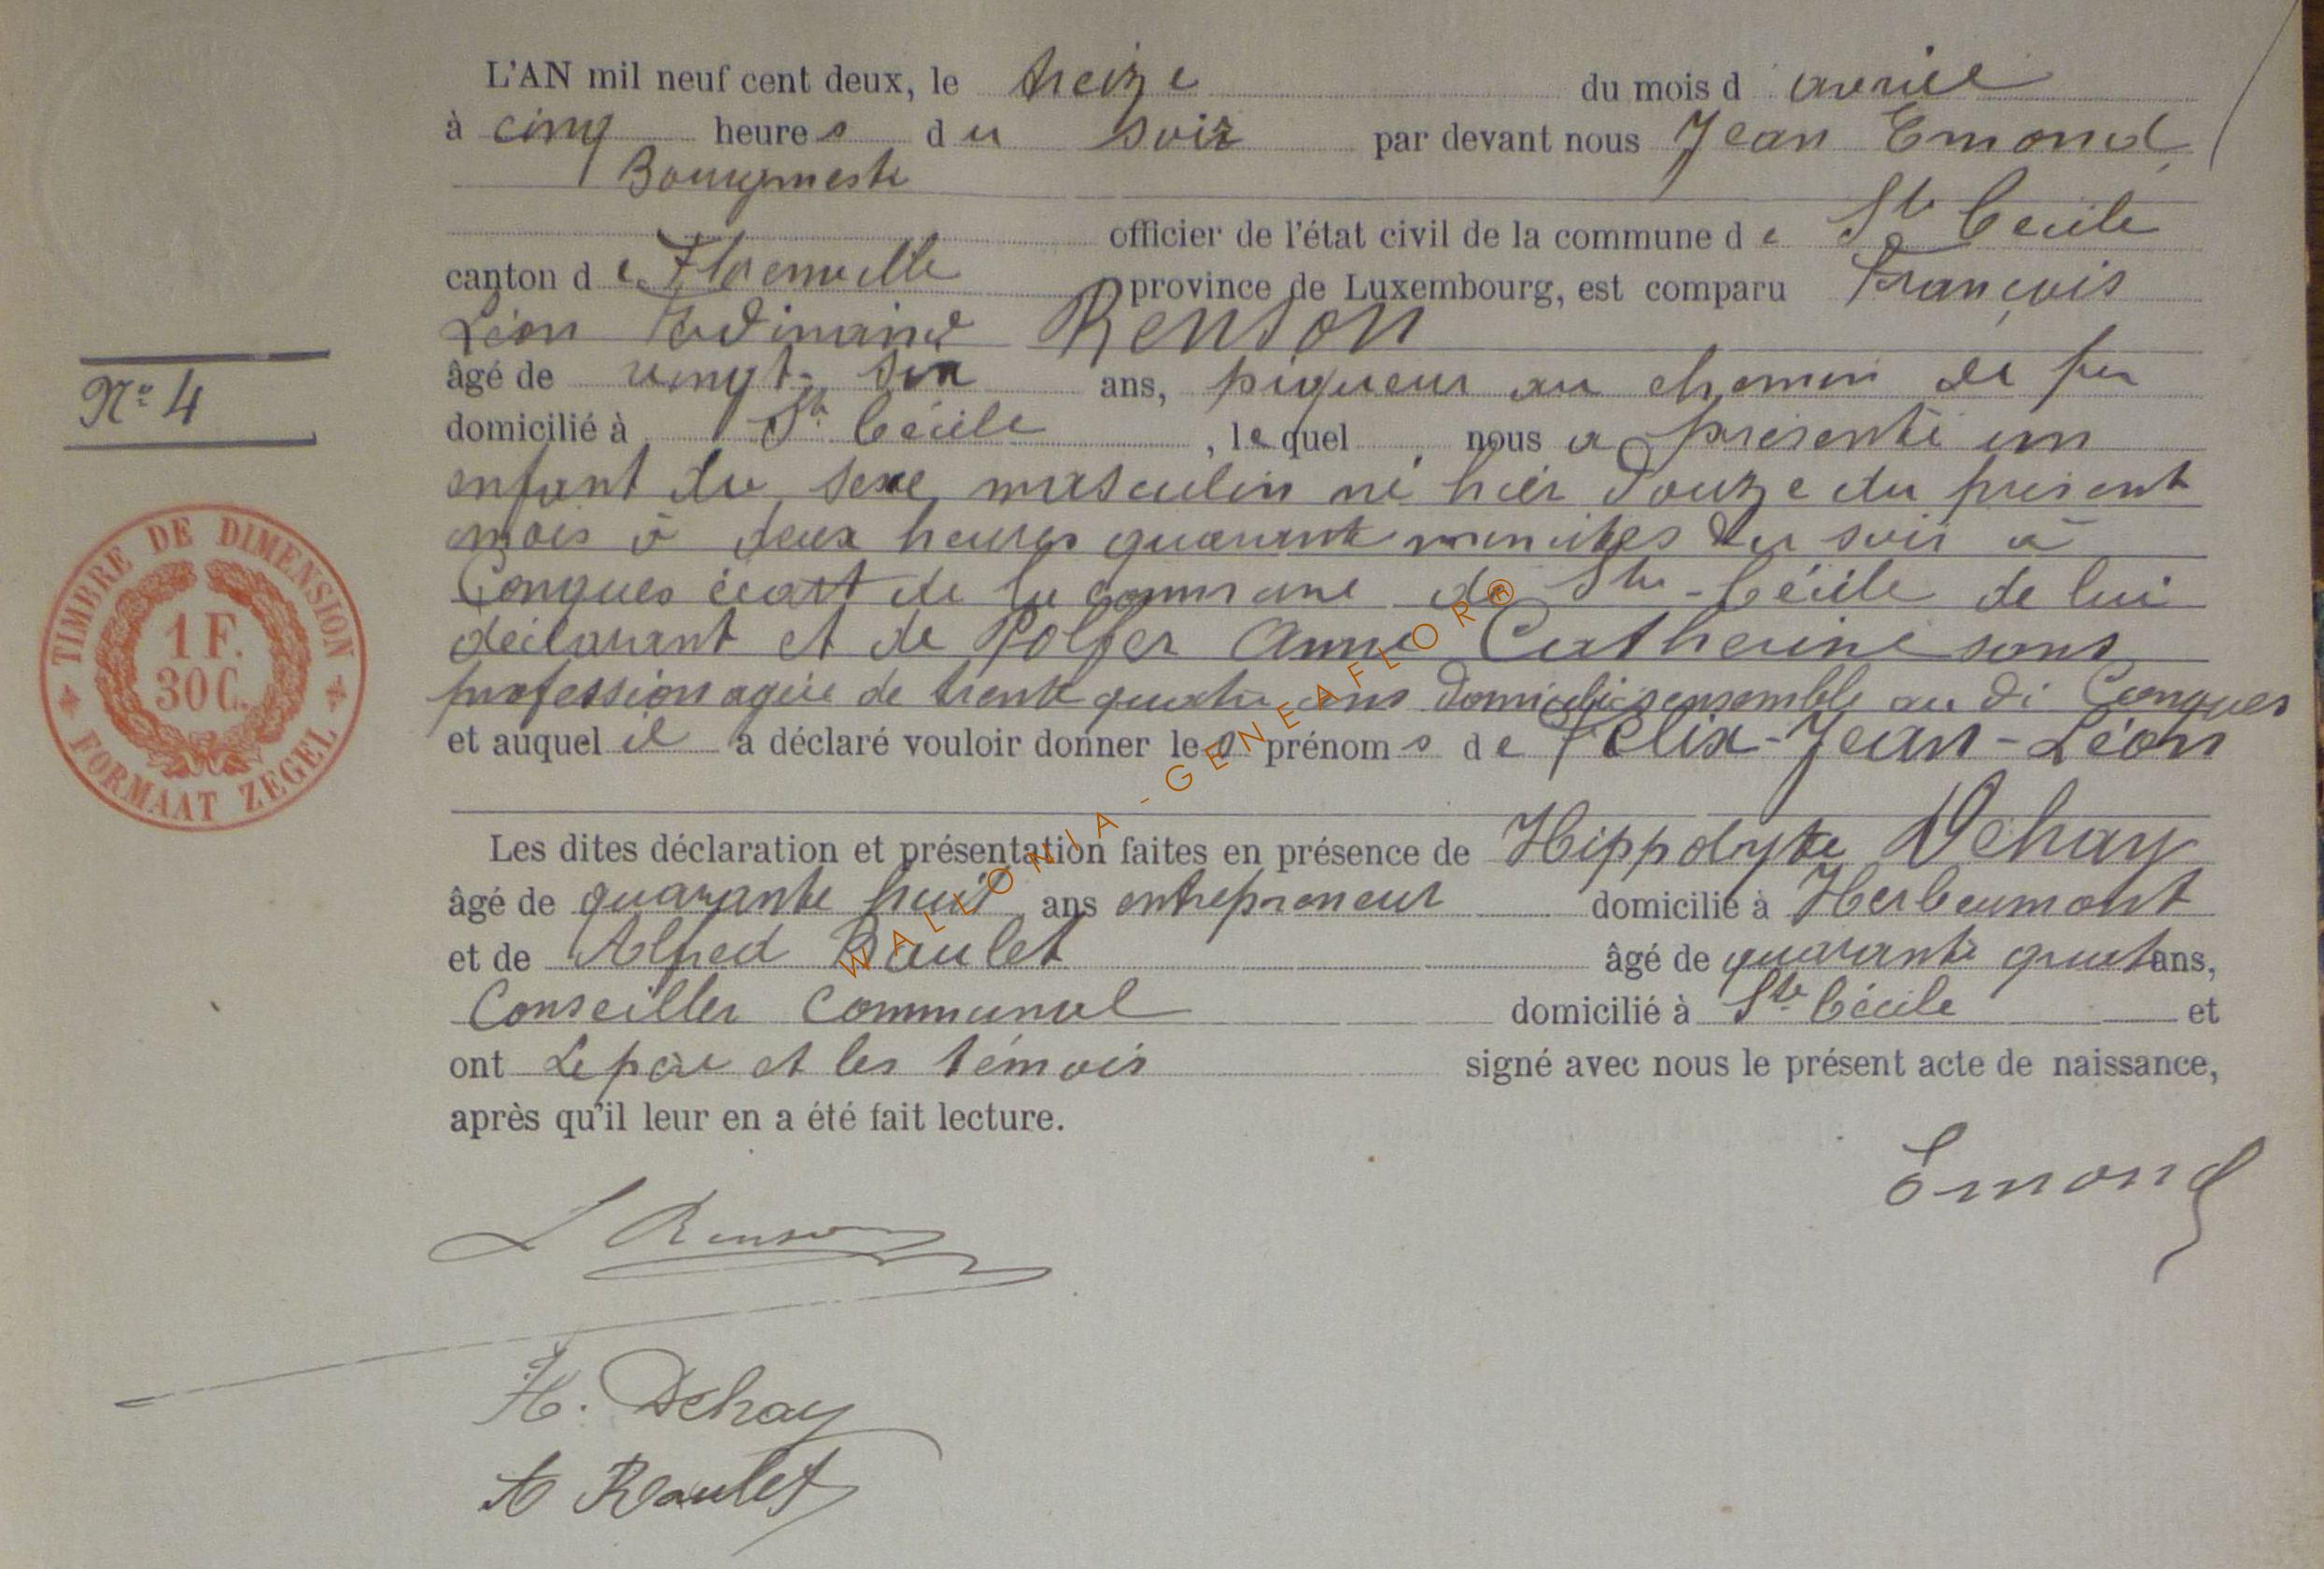 L'AN mil neuf cent deux, le treize du mois d avril
à cinq heures du soir par devant nous Jean Emond,
Bourgmestre
officier de l'état civil de la commune de Ste Cécile
canton de Florenville province de Luxembourg, est comparu François
Léon Ferdinand Renson
âgé de vingt-six ans, piqueur au chemin de fer
domicilié à Ste Cécile, lequel nous a présenté un
enfant du sexe masculin né hier douze du présent
mois à deux heures quarante minutes du soir à
Conques écart de la commune de Ste-Cécile de lui
déclarant et de Polfer Anne Catherine sans
profession agée de trente quatre ans domiciliés ensemble au di Conques
et auquel il a déclaré vouloir donner les prénoms de Félix-Jean-Léon
Les dites déclaration et présentation faites en présence de Hippolyte Dehay
âgé de quarante huit ans entrepreneur domicilié à Herbeumont
et de Alfred Raulet âgé de quarante quatre ans,
Conseiller Communal domicilié à Ste Cécile et
ont Le père et les témois signé avec nous le présent acte de naissance,
après qu'il leur en a été fait lecture.
Emond
L Renson
H. Dehay
A Raulet
N° 4
TIMBRE DE DIMENSION
1 F.
30 C.
FORMAAT ZEGEL
WALLONIA - GENEAFLOR®